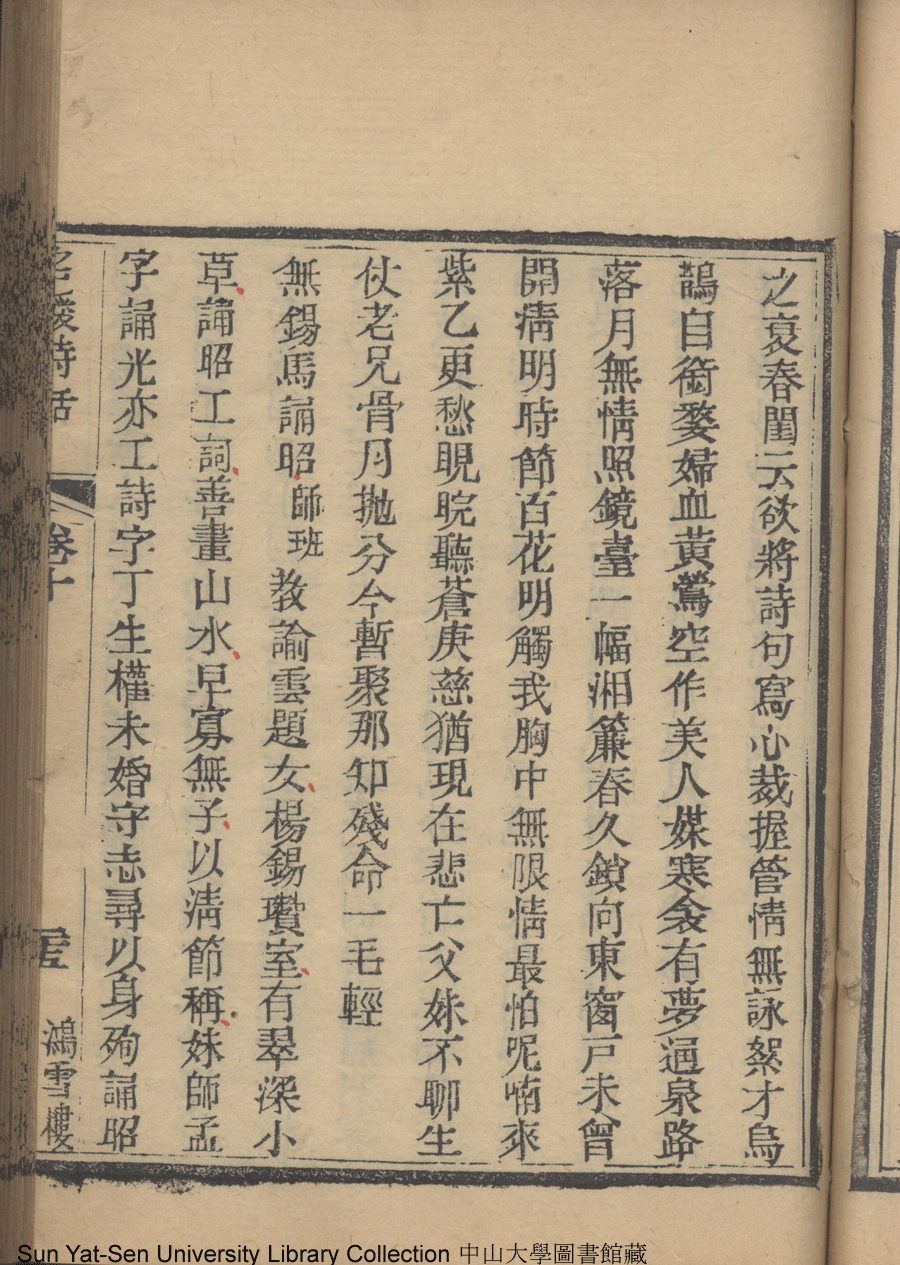 之哀春閨云欲將詩句寫心裁握管情無詠絮才烏
鵲自銜婺婦血黃鶯空作美人媒寒衾有夢通泉路
落月無情照鏡臺一幅湘簾春久鎖向東窗戸未曾
開清明時節百花明觸我胸中無限情最怕呢喃來
紫乙更愁睍睆聽蒼庚慈猶現在悲亡父妹不聊生
仗老兄骨月拋分今暫聚那知殘命一毛輕
無錫馬誦昭師班教諭雲題女楊錫瓚室有翠深小
草誦昭工詞善畫山水早寡無子以清節稱妹師孟
字誦光亦工詩字丁生權未婚守志尋以身殉誦昭
名媛詩話
卷十
鴻雪樓
Sun Yat-Sen University Library Collection 中山大學圖書館藏